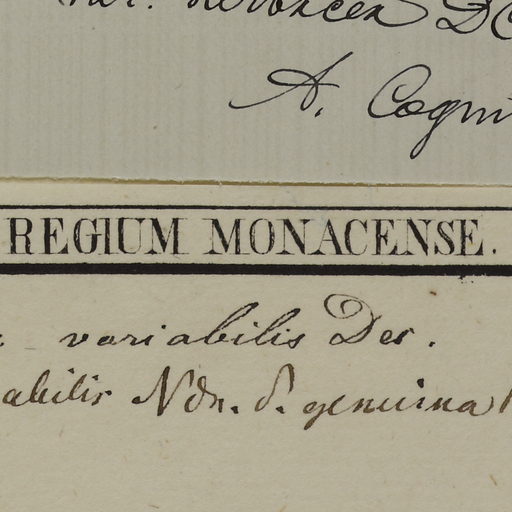 var. nervosa DC
A. Cogni
REGIUM MONACENSE.
variabilis Der.
abilis Ndn. δ. genuina